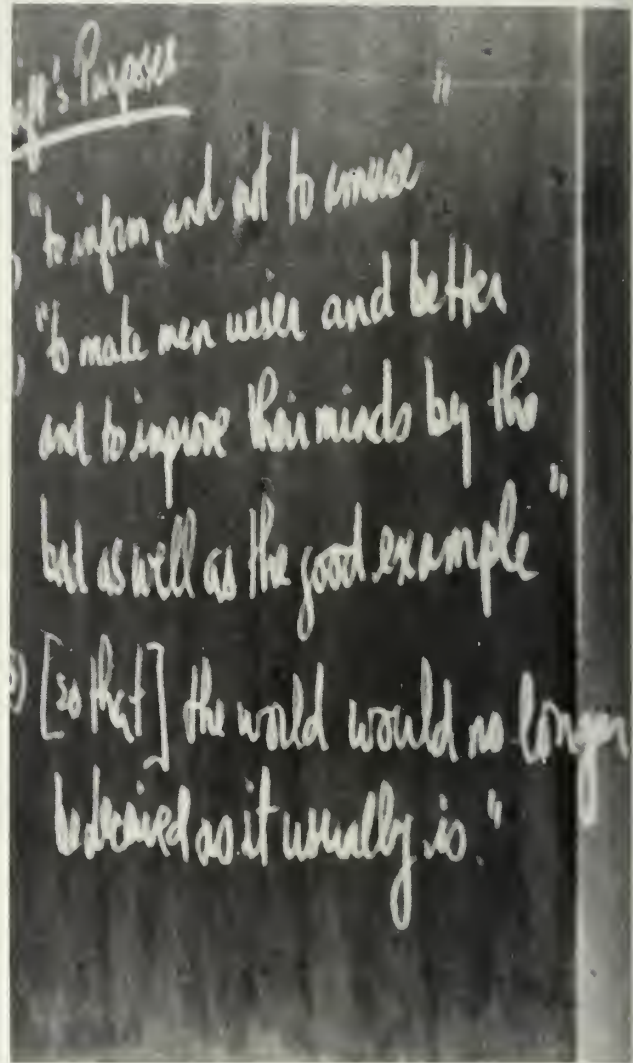 's Purposes
"
"to inform, and not to amuse
"to make men wiser and better
and to improve their minds by the
bad as well as the good example"
) [so that] the world would no longer
be deceived as it usually is."